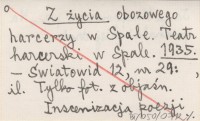 Z życia obozowego
harcerzy w Spale. Teatr
harcerski w Spale. 1935.
— Światowid 12, nr 29: ,
il. Tylko fot. z objaśn.
Inscenizacja poezji